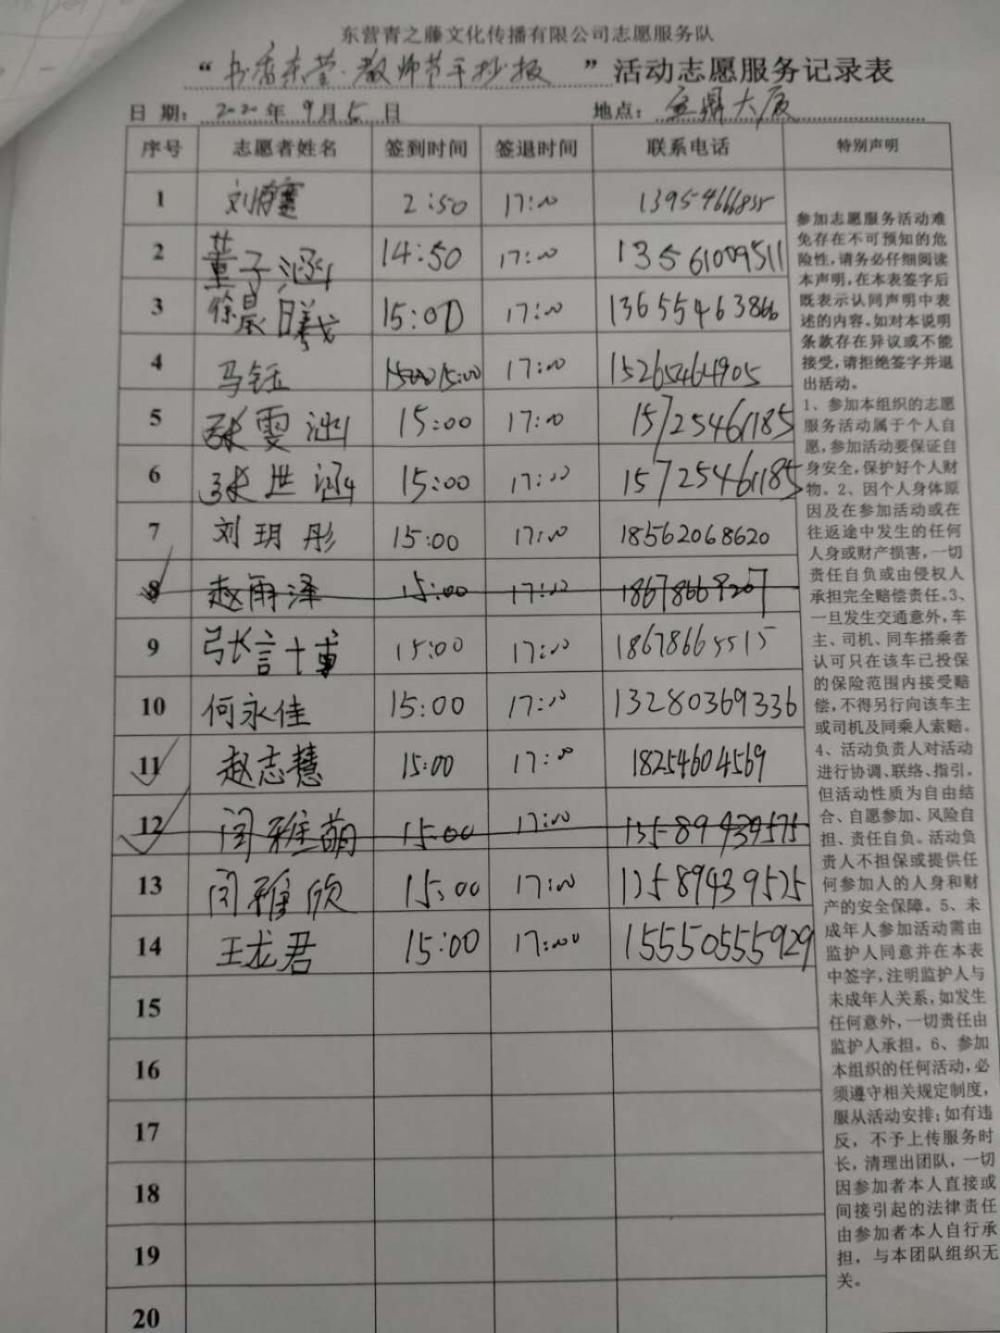 东营青之藤文化传播有限公司志愿服务队
“书香东营·教师节手抄报”活动志愿服务记录表
日期：2020年9月5日 地点：金鼎大厦
序号 志愿者姓名 签到时间 签退时间 联系电话 特别声明
1 刘 2:50 17:00
2 董子涵 14:50 17:00 13561009511
3 徐晨曦 15:00 17:00 13655463866
4 马钰 15:00 17:00 15265464905
5 张雯涵 15:00 17:00 15725461185
6 张世涵 15:00 17:00 15725461185
7 刘玥彤 15:00 17:00 18562068620
8 赵雨泽 15:00 17:00 18678669207
9 张言博 15:00 17:00 18678665515
10 何永佳 15:00 17:00 13280369336
11 赵志慧 15:00 17:00 18254604569
12 闫雅萌 15:00 17:00 13589439575
13 闫雅欣 15:00 17:00 13589439575
14 王龙君 15:00 17:00 15550555929
15
16
17
18
19
20
参加志愿服务活动难
免存在不可预知的危
险性，请务必仔细阅读
本声明，在本表签字后
既表示认同声明中表
述的内容。如对本说明
条款存在异议或不能
接受，请拒绝签字并退
出活动。
1、参加本组织的志愿
服务活动属于个人自
愿，参加活动要保证自
身安全，保护好个人财
物。2、因个人身体原
因及在参加活动或在
往返途中发生的任何
人身或财产损害，一切
责任自负或由侵权人
承担完全赔偿责任。3、
一旦发生交通意外，车
主、司机、同车搭乘者
认可只在该车已投保
的保险范围内接受赔
偿，不得另行向该车主
或司机及同乘人索赔。
4、活动负责人对活动
进行协调、联络、指引。
但活动性质为自由结
合、自愿参加、风险自
担、责任自负。活动负
责人不担保或提供任
何参加人的人身和财
产的安全保障。5、未
成年人参加活动需由
监护人同意并在本表
中签字，注明监护人与
未成年人关系，如发生
任何意外，一切责任由
监护人承担。6、参加
本组织的任何活动，必
须遵守相关规定制度，
服从活动安排；如有违
反，不予上传服务时
长，清理出团队，一切
因参加者本人直接或
间接引起的法律责任
由参加者本人自行承
担，与本团队组织无
关。